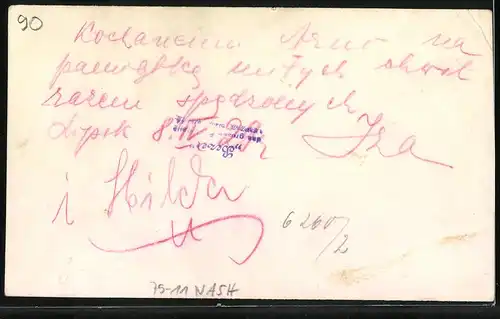 90
Kochanemu Arno na
pamiątkę miłych chwil
razem spędzonych
Lipsk 8.IV. Iza
i Hilda
6260/2
75-11 NASH